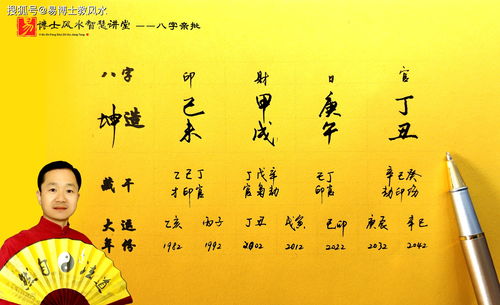 搜狐号@易博士教风水
易 博士风水智慧讲堂 ——八字亲批
八字 印 財 日 官
坤造 己 甲 庚 丁
未 戌 午 丑
藏干 乙己丁 丁戊辛 己丁 辛己癸
才印官 官枭劫 印官 劫印伤
大运 乙亥 丙子 丁丑 戊寅 己卯 庚辰 辛巳
年份 1982 1992 2002 2012 2022 2032 2042
然自法道